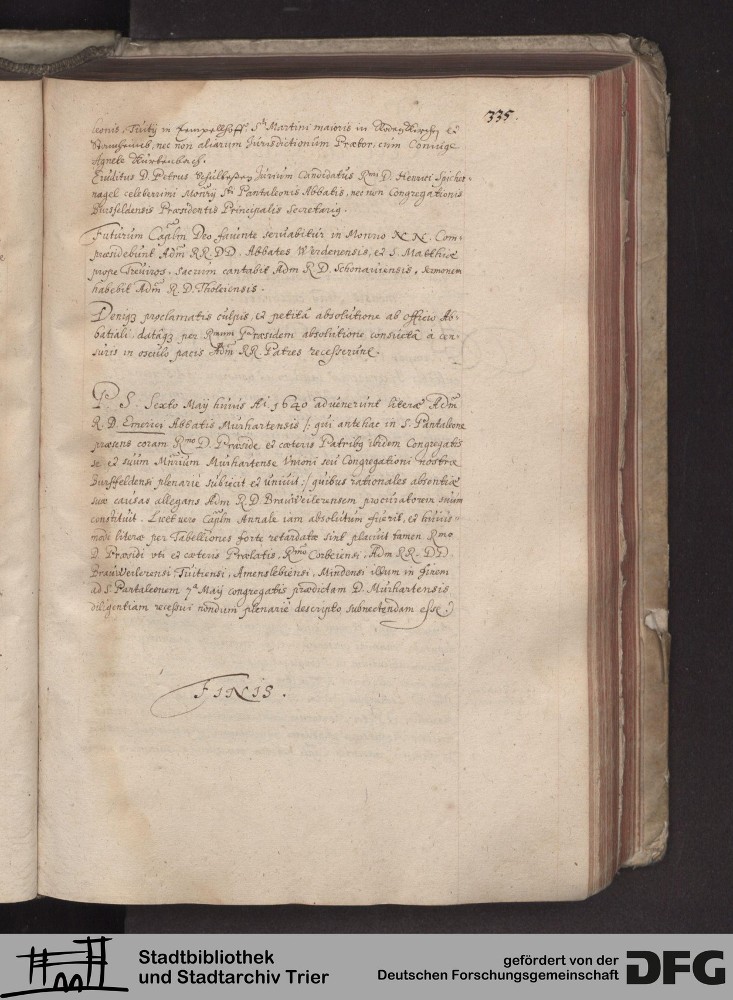 335.
leonis, Tuitÿ in Zempellhoff. Sti Martini maioris in Rodenkirchen et
nec non aliarum Jurisdictionum Prætor, cum Coniuge
Agnete Kurtenbach.
Eruditus D. Petrus Jurium Candidatus Rmi D. Henrici Spicher-
nagel celeberrimi Monrÿ Sti Pantaleonis Abbatis, nec non Congregationis
Bursfeldensis Præsidentis Principalis Secretariq.
Futurum Caplm Deo fauente seruabitur in Monrio N. N. Com-
præsidebunt Adm RR. DD. Abbates Werdenensis, et S. Matthiæ
prope Treuiros, Sacrum cantabit Adm R. D. Schönauiensis, sermonem
habebit Adm R. D. Tholeiensis.
Deniq3 proclamatis culpis, et petitâ absolutione ab officio Ab-
batiali, datâq3 per Rmum Præsidem absolutione consuetâ à cen-
suris in osculo pacis Adm RR. Patres recesserunt.
P. S. Sexto Maÿ huius Ai 1640 aduenerunt literæ Adm
R. D. Emerici Abbatis Murhartensis /: qui antehac in S. Pantaleone
præsens coram Rmo D. Præside et cæteris Patribq ibidem Congregatis
se, et suum Mnrium Murhartense Vnioni seu Congregationi nostræ
Bursffeldensi plenarie subiecit et uniuit :/ quibus rationales absentiæ
suæ causas allegans Adm R. D. Brauweilerensem procuratorem suum
constituit. Licet uero Caplm Annale iam absolutum fuerit, et huius-
modi literæ per Tabelliones forte retardatæ sint placuit tamen Rmo
D. Præsidi vti et cæteris Prælatis, Rmo Corbeiensi, Adm RR. DD.
Brauweilerensi Tuitiensi, Amenslebiensi, Mindensi illum in finem
ad S. Pantaleonem 7a Maÿ congregatis prædictam D. Murhartensis
diligentiam recessui nondum plenarie descripto subnectendam esse.
FINIS.
Stadtbibliothek
und Stadtarchiv Trier
gefördert von der
Deutschen Forschungsgemeinschaft
DFG